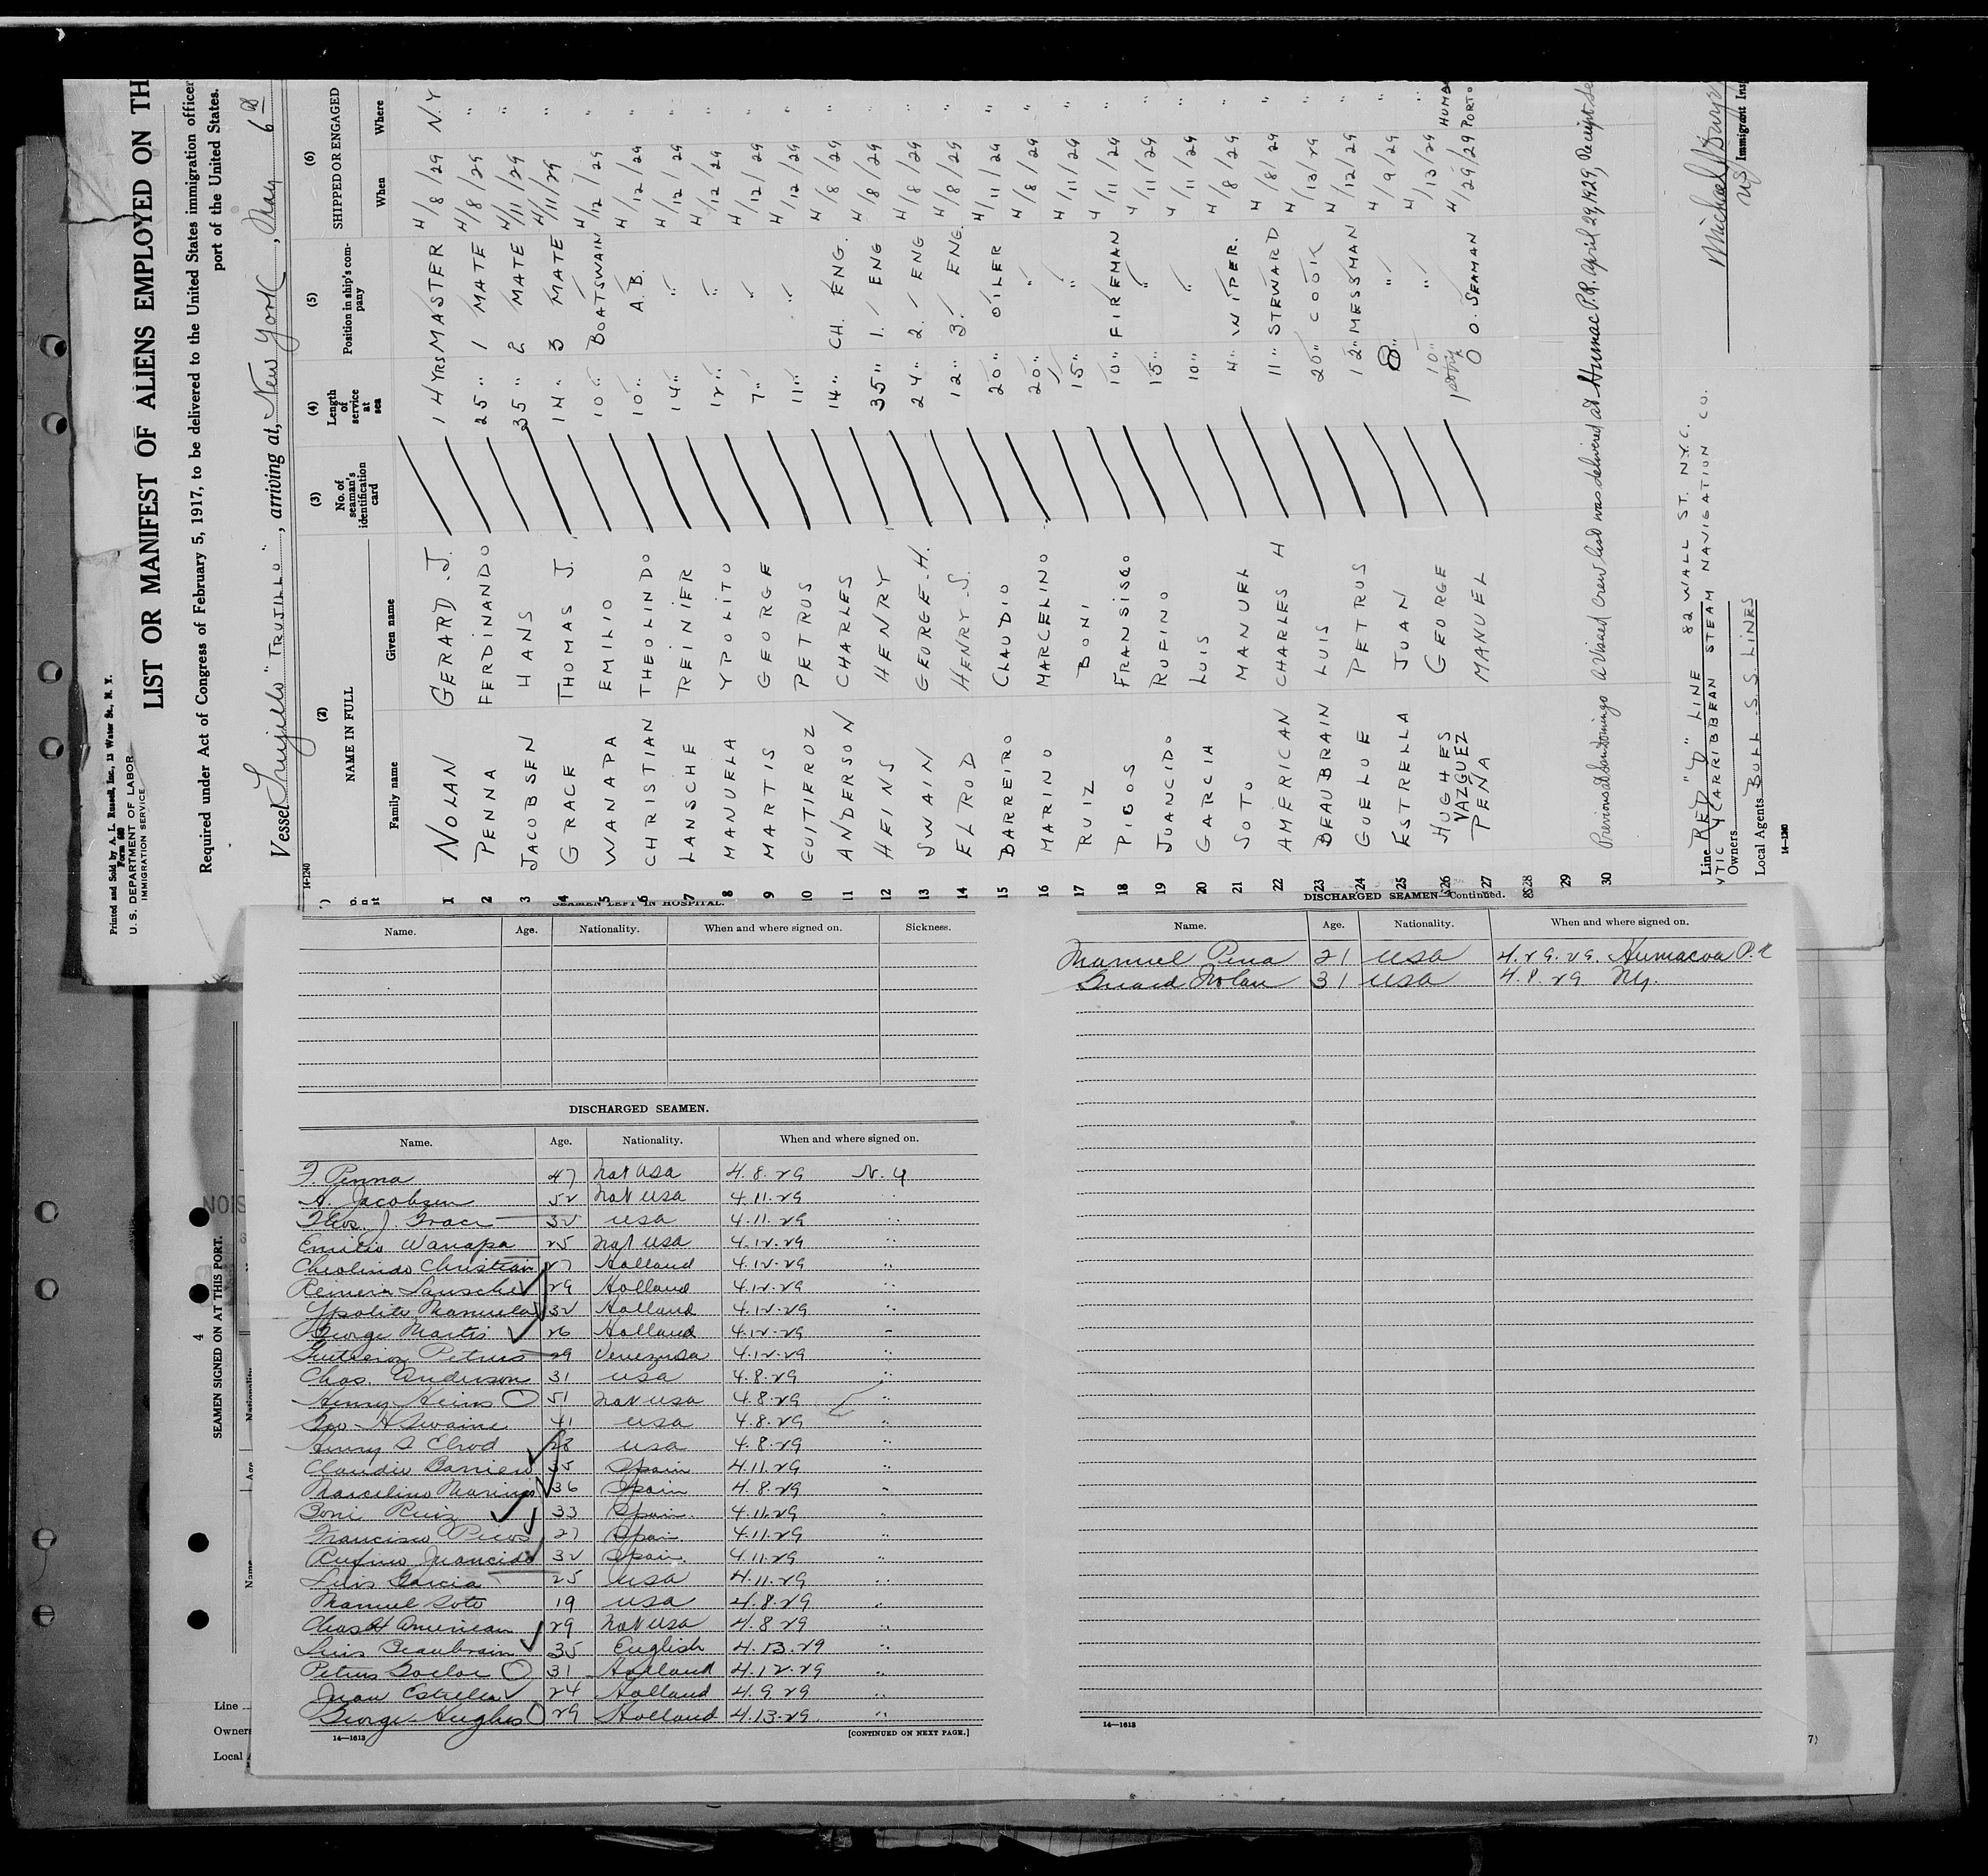 Printed and Sold by A. L. Russell, Inc., 13 Water St., N. Y.
Form 680
U. S. DEPARTMENT OF LABOR
IMMIGRATION SERVICE
LIST OR MANIFEST OF ALIENS EMPLOYED ON TH
Required under Act of Congress of February 5, 1917, to be delivered to the United States immigration officer
port of the United States.
Vessel Trujillo "TRUJILLO", arriving at New York, May 6th
14-1240
(2) (3) (4) (5) (6)
NAME IN FULL No. of seaman's identification card Length of service at sea Position in ship's company SHIPPED OR ENGAGED
Family name Given name When Where
1 NOLAN GERARD. J. 14 YRS MASTER 4/8/29 N.Y
2 PENNA FERDINANDO 25 " 1 MATE 4/8/29 "
3 JACOBSEN HANS 35 " 2 MATE 4/11/29 "
4 GRACE THOMAS J. 14 " 3 MATE 4/11/29 "
5 WANAPA EMILIO 10 " BOATSWAIN 4/12/29 "
6 CHRISTIAN THEOLINDO 10 " A.B. 4/12/29 "
7 LANSCHE REINIER 14 " " 4/12/29 "
8 MANUELA YPOLITO 12 " " 4/12/29 "
9 MARTIS GEORGE 7 " " 4/12/29 "
10 GUITIEROZ PETRUS 11 " " 4/12/29 "
11 ANDERSON CHARLES 14 " CH. ENG. 4/8/29 "
12 HEINS HENRY 35 " 1. ENG 4/8/29 "
13 SWAIN GEORGE. H. 24 " 2. ENG 4/8/29 "
14 ELROD HENRY. S. 12 " 3. ENG. 4/8/29 "
15 BARREIRO CLAUDIO 20 " OILER 4/11/29 "
16 MARINO MARCELINO 20 " " 4/8/29 "
17 RUIZ BONI 15 " " 4/11/29 "
18 PICOS FRANSISCO 10 " FIREMAN 4/11/29 "
19 JUANCIDO RUFINO 15 " " 4/11/29 "
20 GARCIA LUIS 10 " " 4/11/29 "
21 SOTO MANUEL 4 " WIPER. 4/8/29 "
22 AMERICAN CHARLES H 11 " STEWARD 4/8/29 "
23 BEAUBRAIN LUIS 20 " COOK 4/13/29 "
24 GUELOE PETRUS 12 " MESSMAN 4/12/29 "
25 ESTRELLA JUAN 8 " " 4/9/29 "
26 HUGHES GEORGE 10 " " 4/13/29 "
27 VAZGUEZ PEÑA MANUEL 0 O. SEAMAN 4/29/29 HUMA PORTO
28
29
30 Previous at San Domingo A Visaed Crew list was delivered at Humac P.R. April 29, 1929, Receipt
Line RED "D" LINE 82 WALL ST. N.Y.C.
Owners NTIC & CARRIBBEAN STEAM NAVIGATION CO.
Local Agents BULL S.S. LINES
14-1240
Michael
US Immigrant Ins
SEAMEN LEFT IN HOSPITAL.
Name. Age. Nationality. When and where signed on. Sickness.
DISCHARGED SEAMEN.
Name. Age. Nationality. When and where signed on.
F. Penna 47 Nat USA 4.8.29 N.Y
H. Jacobsen 52 Nat USA 4.11.29 "
Thos. J. Grace 32 USA 4.11.29 "
Emilio Wanapa 25 Nat USA 4.12.29 "
Theolindo Christian 27 Holland 4.12.29 "
Reinier Lansche 29 Holland 4.12.29 "
Ypolito Manuela 32 Holland 4.12.29 "
George Martis 26 Holland 4.12.29 "
Guitieroz Petrus 29 Venezuela 4.12.29 "
Chas. Anderson 31 USA 4.8.29 "
Henry Heins 51 Nat USA 4.8.29 "
Geo H Swaine 41 USA 4.8.29 "
Henry S Elrod 28 USA 4.8.29 "
Claudio Barriero 35 Spain 4.11.29 "
Marcelino Marino 36 Spain 4.8.29 "
Boni Ruiz 33 Spain. 4.11.29 "
Francisco Picos 27 Spain 4.11.29 "
Rufino Juancido 32 Spain. 4.11.29 "
Luis Garcia 25 USA 4.11.29 "
Manuel Soto 19 USA 4.8.29 "
Chas H American 29 Nat USA 4.8 29 "
Luis Beaubrain 35 English 4.13.29 "
Petrus Goeloe 31 Holland 4.12.29 "
Juan Estrella 24 Holland 4.9.29 "
George Hughes 29 Holland 4.13.29 "
14—1613
[CONTINUED ON NEXT PAGE.]
DISCHARGED SEAMEN—Continued.
Name. Age. Nationality. When and where signed on.
Manuel Pena 21 USA 4.29.29. Humacoa P.R
Gerard Nolan 31 USA 4.8.29 NY.
14—1613
4
SEAMEN SIGNED ON AT THIS PORT.
Name Age Nationality
Line
Owners
Local A
7)